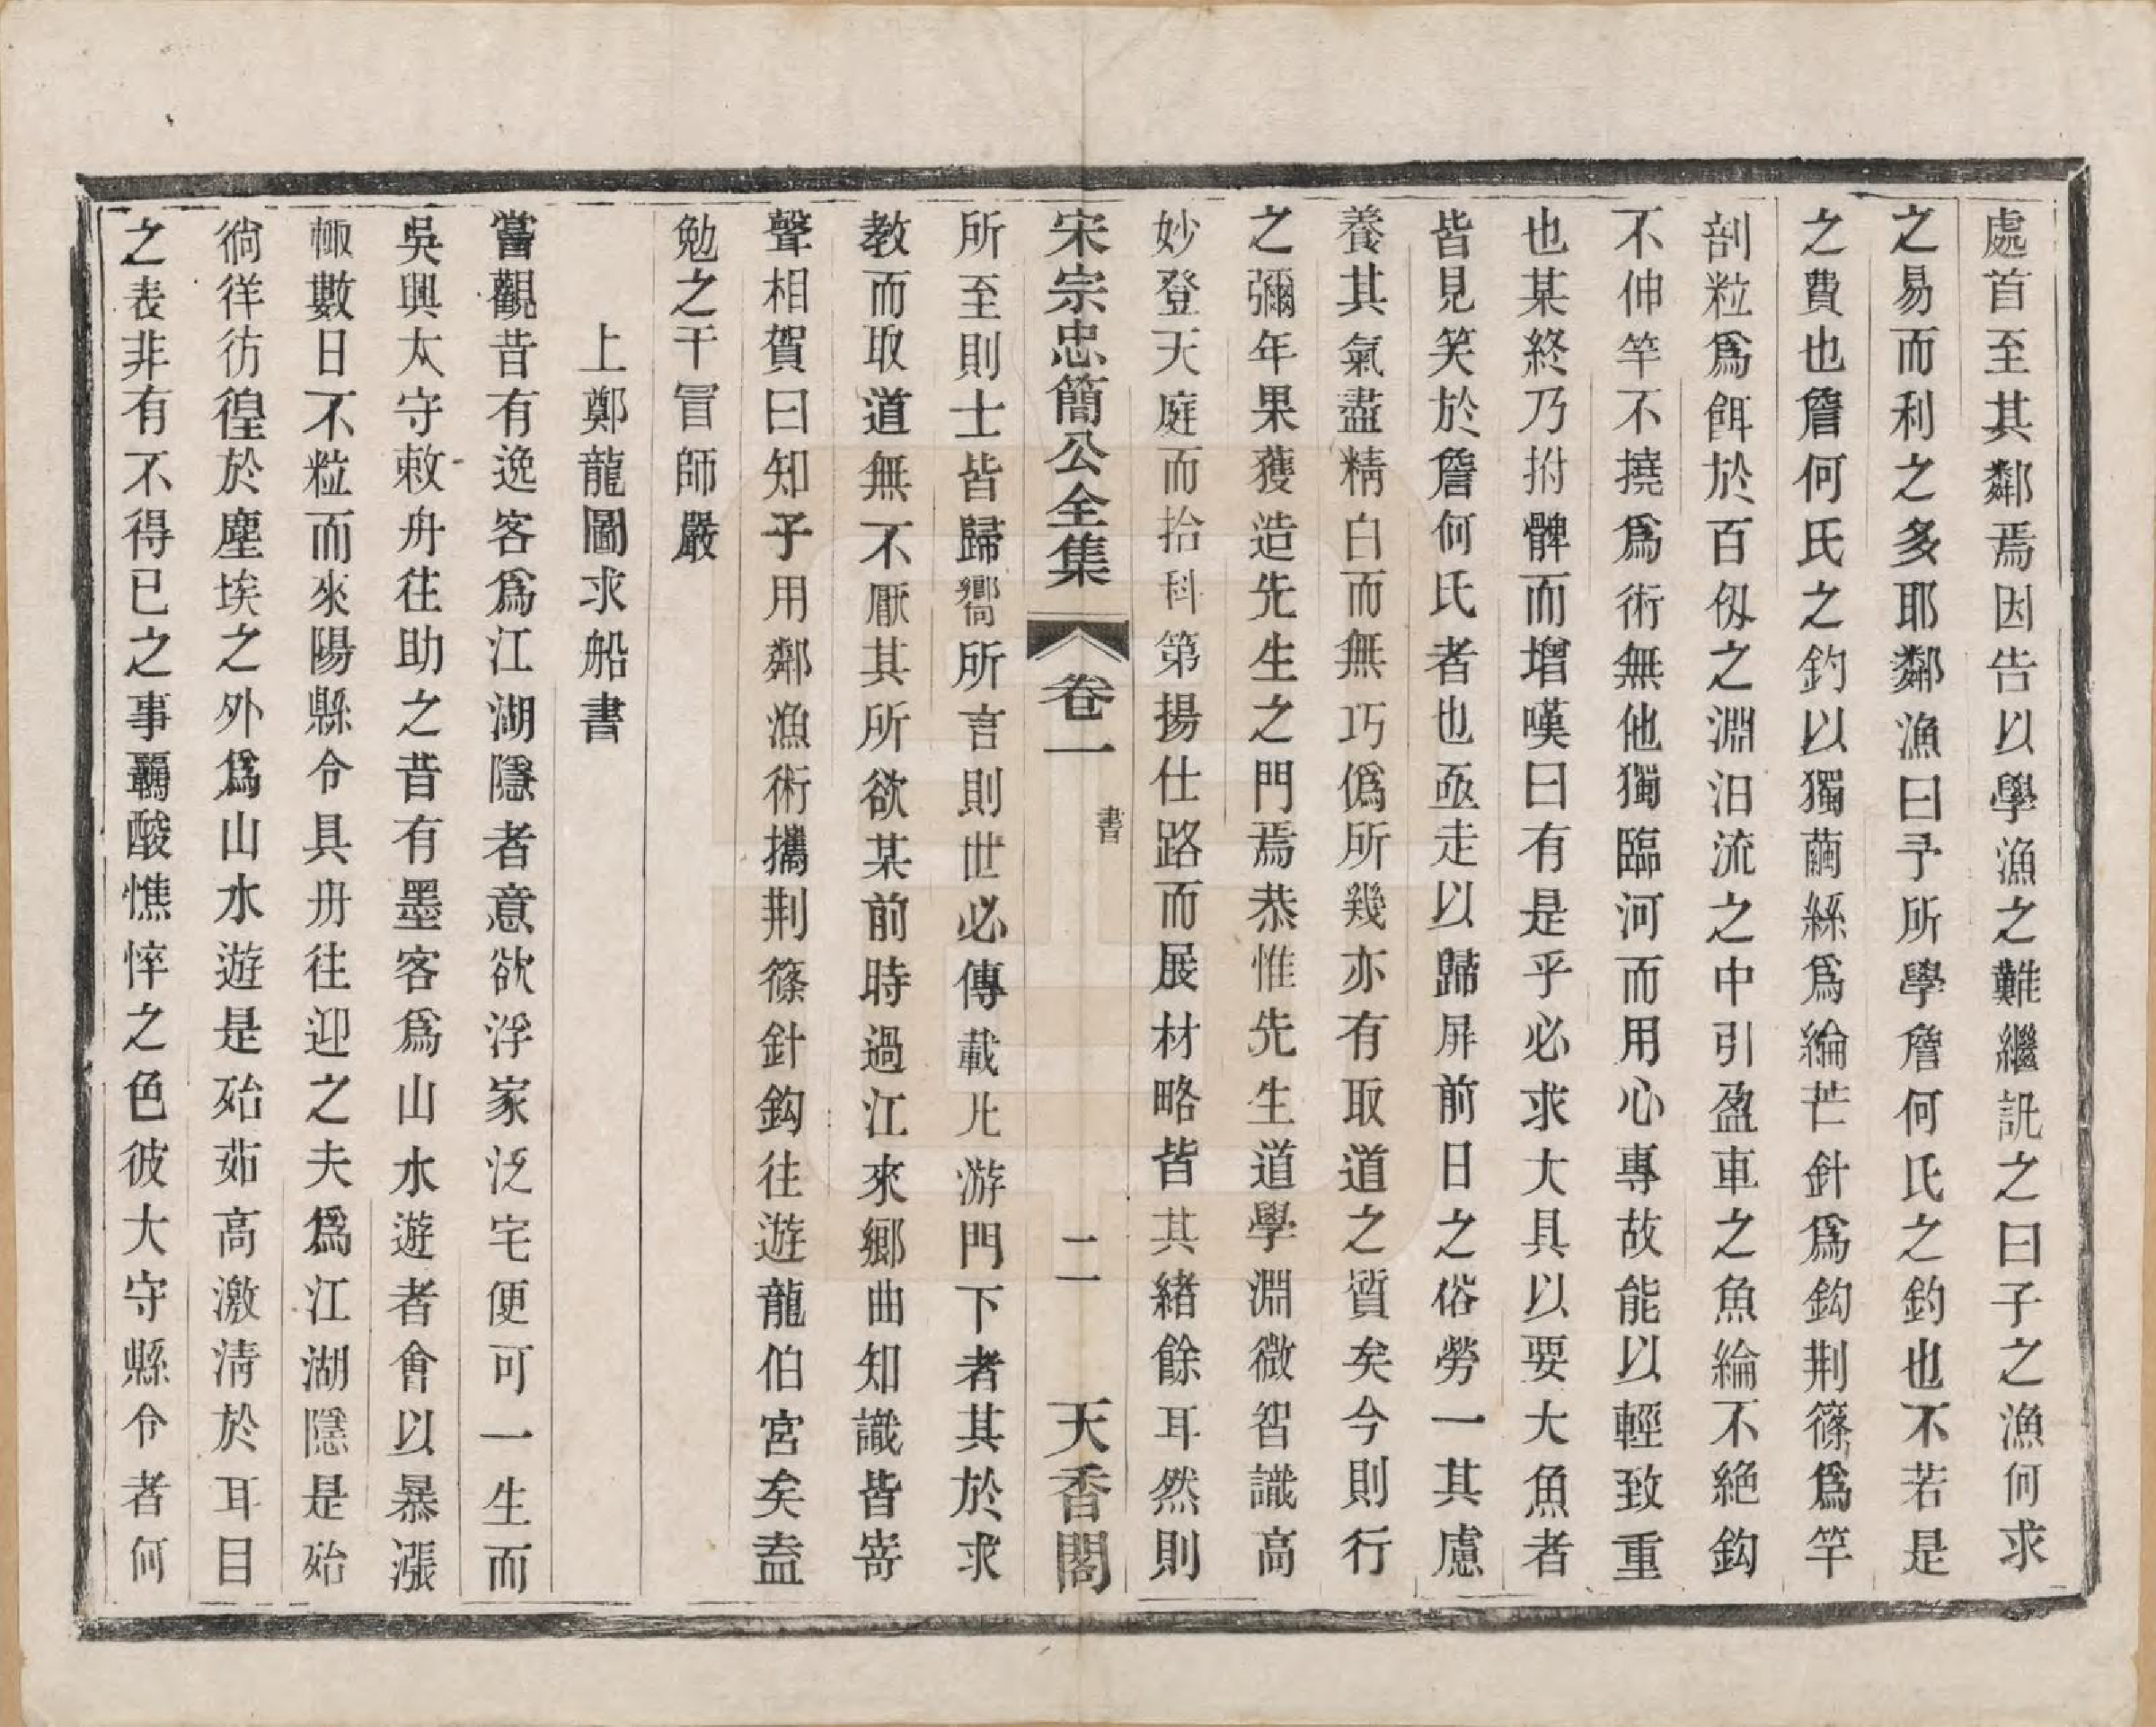 處首至其鄰焉因告以學漁之難繼訊之曰子之漁何求
之易而利之多耶鄰漁曰予所學詹何氏之釣也不若是
之費也詹何氏之釣以獨繭絲爲綸芒針爲鈎荆篠爲竿
剖粒爲餌於百仭之淵汨流之中引盈車之魚綸不絕鈎
不伸竿不撓爲術無他獨臨河而用心專故能以輕致重
也某終乃拊髀而增嘆曰有是乎必求大具以要大魚者
皆見笑於詹何氏者也亟走以歸屏前日之俗勞一其慮
養其氣盡精白而無巧僞所幾亦有取道之質矣今則行
之彌年果獲造先生之門焉恭惟先生道學淵微智識高
妙登天庭而拾科第揚仕路而展材略皆其緒餘耳然則
宋宗忠簡公全集 卷一 書 二 天香閣
所至則士皆歸嚮所言則世必傳載凡游門下者其於求
教而取道無不厭其所欲某前時過江來鄉曲知識皆寄
聲相賀曰知子用鄰漁術攜荆篠針鈎往遊龍伯宮矣盍
勉之干冒師嚴
上鄭龍圖求船書
嘗觀昔有逸客爲江湖隱者意欲浮家泛宅便可一生而
吳興太守敕舟往助之昔有墨客爲山水遊者會以暴漲
輙數日不粒而來陽縣令具舟往迎之夫爲江湖隱是殆
徜徉彷徨於塵埃之外爲山水遊是殆茹高激淸於耳目
之表非有不得已之事羈酸憔悴之色彼大守縣令者何